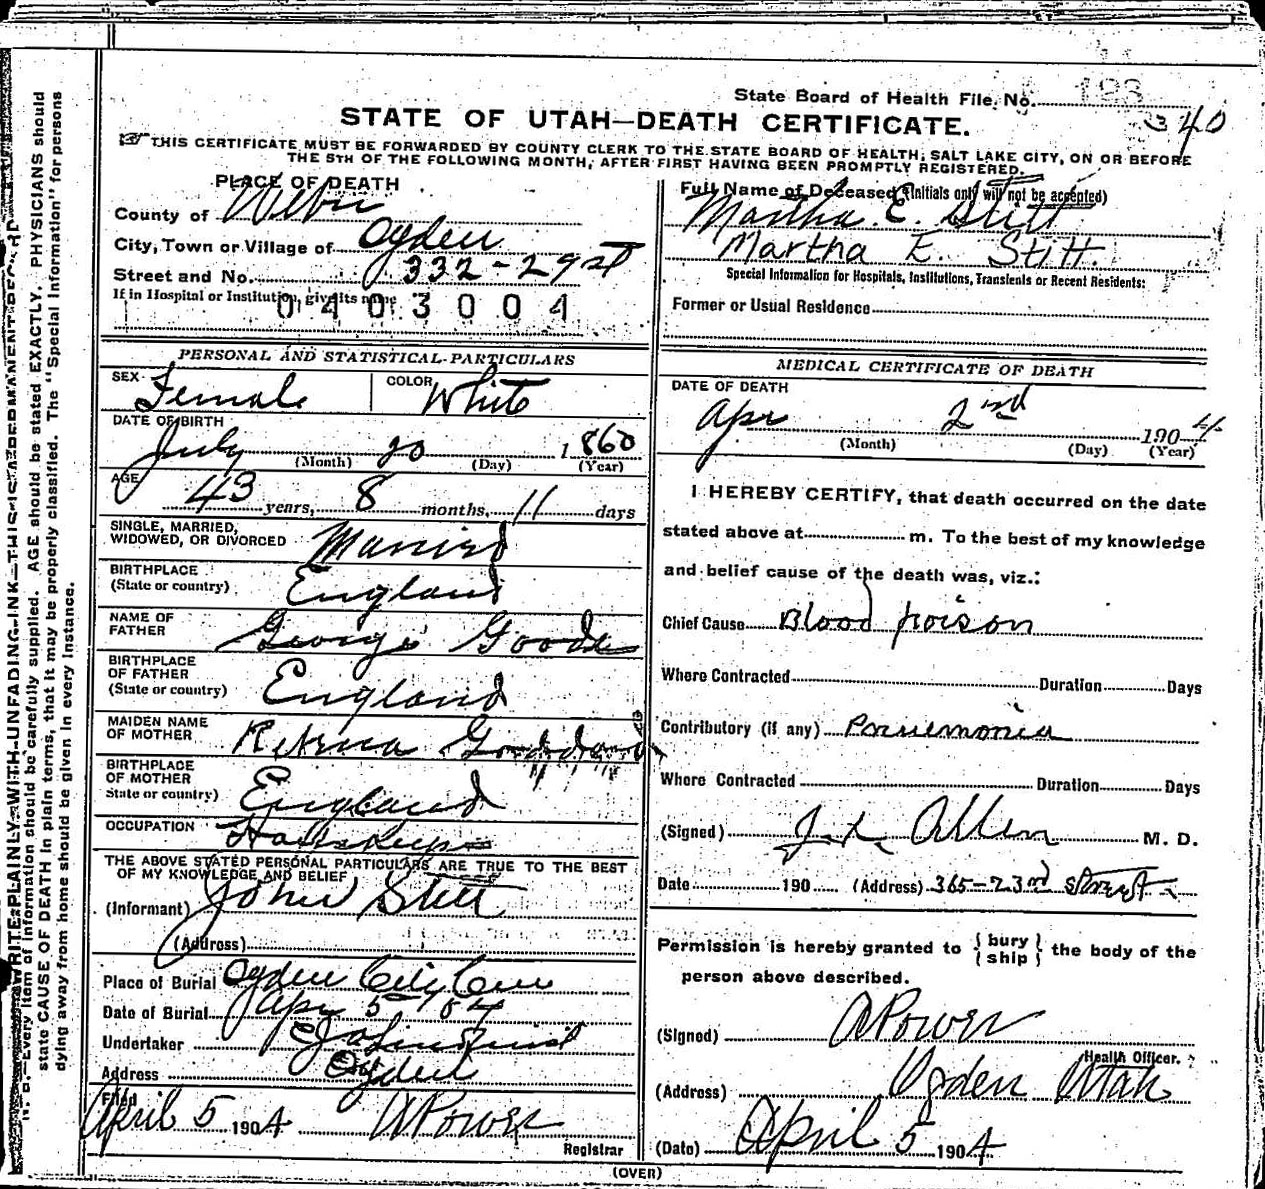 State Board of Health File, No. 193
340
STATE OF UTAH—DEATH CERTIFICATE.
THIS CERTIFICATE MUST BE FORWARDED BY COUNTY CLERK TO THE STATE BOARD OF HEALTH, SALT LAKE CITY, ON OR BEFORE
THE 5TH OF THE FOLLOWING MONTH, AFTER FIRST HAVING BEEN PROMPTLY REGISTERED.
PLACE OF DEATH
County of Weber
City, Town or Village of Ogden
Street and No. 332-29st
If in Hospital or Institution, give its name
0403004
Full Name of Deceased (Initials only will not be accepted)
Martha E. Stitt
Martha E. Stitt.
Special Information for Hospitals, Institutions, Transients or Recent Residents:
Former or Usual Residence
PERSONAL AND STATISTICAL PARTICULARS
SEX Female COLOR White
DATE OF BIRTH
July 20 1860
(Month) (Day) (Year)
AGE
43 years, 8 months, 11 days
SINGLE, MARRIED,
WIDOWED, OR DIVORCED Married
BIRTHPLACE
(State or country) England
NAME OF
FATHER George Goode
BIRTHPLACE
OF FATHER
(State or country) England
MAIDEN NAME
OF MOTHER
BIRTHPLACE
OF MOTHER
State or country) England
OCCUPATION
THE ABOVE STATED PERSONAL PARTICULARS ARE TRUE TO THE BEST
OF MY KNOWLEDGE AND BELIEF
(Informant) John Stitt
(Address)
Place of Burial Ogden City Cem
Date of Burial Apr 5-/04
Undertaker
Address Ogden
Filed
April 5 1904 A Power
Registrar
MEDICAL CERTIFICATE OF DEATH
DATE OF DEATH
Apr 2nd 1904
(Month) (Day) (Year)
I HEREBY CERTIFY, that death occurred on the date
stated above at m. To the best of my knowledge
and belief cause of the death was, viz.:
Chief Cause Blood poison
Where Contracted Duration Days
Contributory (if any) Pnuemonia
Where Contracted Duration Days
(Signed) Allen M. D.
Date 190 (Address) 365-23rd street
Permission is hereby granted to {bury ship} the body of the
person above described.
(Signed) A Power
Health Officer.
(Address) Ogden Utah
(Date) April 5 1904
(OVER)
N. B. Every item of information should be carefully supplied. AGE should be stated EXACTLY. PHYSICIANS should
state CAUSE OF DEATH in plain terms, that it may be properly classified. The "Special Information" for persons
dying away from home should be given in every instance.
WRITE PLAINLY WITH UNFADING INK—THIS IS A PERMANENT RECORD